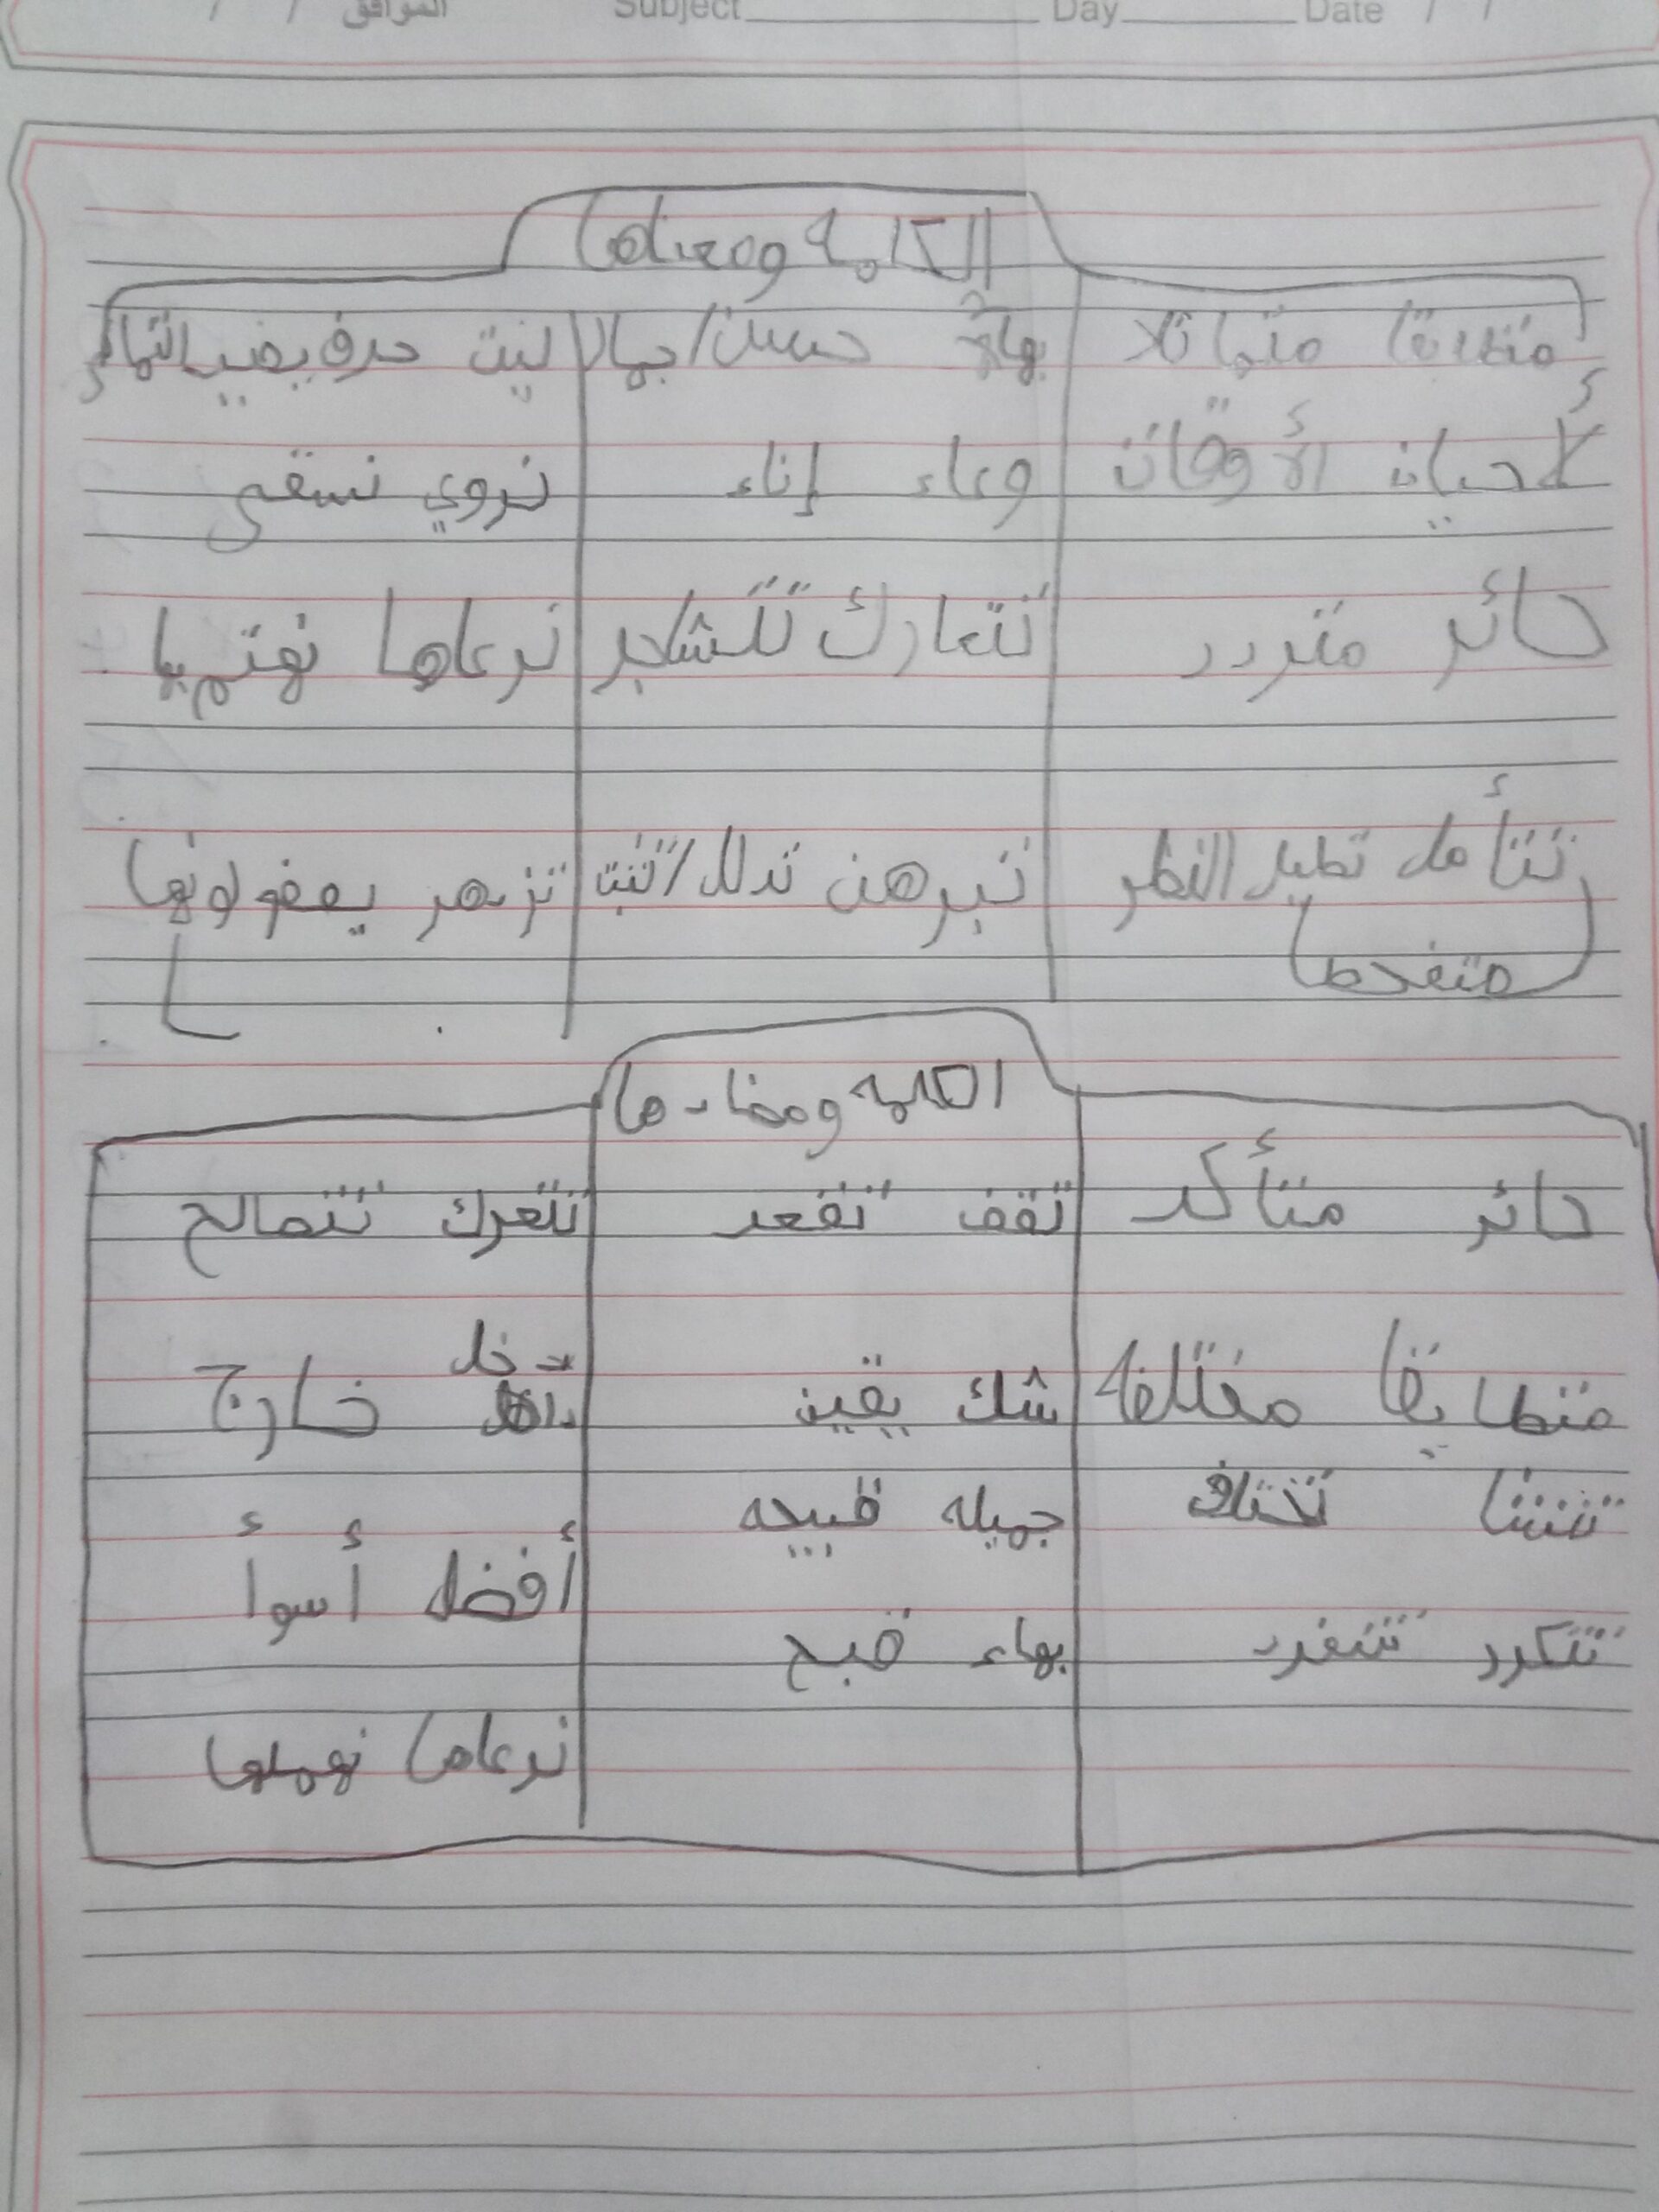 الموافق / / Subject Day Date / /
الكلمة ومعناها
متطابقا متماثلا بهاء حسن/جمالا ليت حرف يفيد التمني
الأحيان الأوقات وعاء إناء نروي نسقي
حائر متردد تتعارك تتشاجر نرعاها نهتم بها
تتأمل تطيل النظر تبرهن تدلل/تثبت تزهر
متفحصا
الكلمه ومضادها
حائر متأكد تقف تقعد تتعرك تتصالح
متطابقا مختلفا شك يقين تدخل خارج
تختلف جميله قبيحه
أفضل أسوأ
تتكرر تنفرد بهاء قبح
نرعاها نهملها